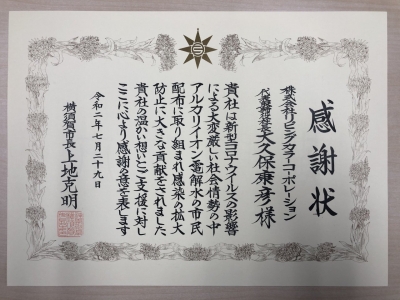 感謝状
株式会社リビングスファーコーポレーション
代表取締役社長 大久保康彦様
貴社は新型コロナウイルスの影響
による大変厳しい社会情勢の中
アルカリイオン電解水の市民
配布に取り組まれ感染の拡大
防止に大きな貢献をされました
貴社の温かい想いとご支援に対し
ここに心より感謝の意を表します
令和二年七月二十九日
横須賀市長 上地克明